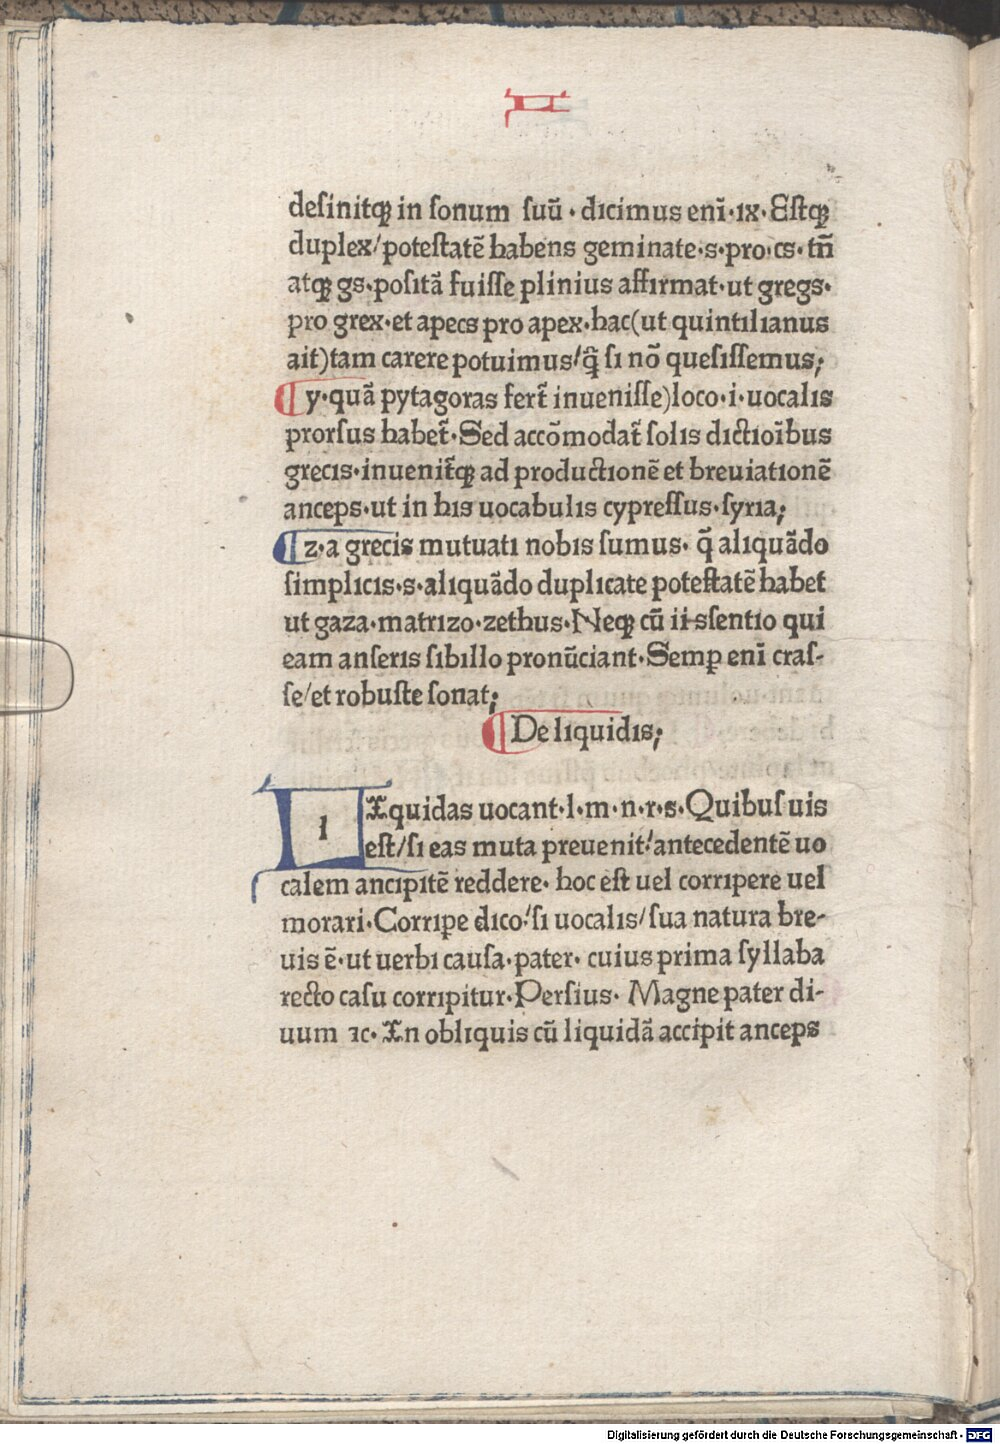 deſinitqꝫ in ſonum ſuū · dicimus enī·ix·Eſtqꝫ
duplex/poteſtatē habens geminate·s·pro·cs·tn̄
atqꝫ gs·poſitā fuiſſe plinius affirmat·ut gregs·
pro grex·et apecs pro apex·hac(ut quintilianus
ait)tam carere potuimus/q̄ ſi nō queſiſſemus;
¶ y·quā pytagoras fert̄ inueniſſe)loco·i·uocalis
prorſus habet̄·Sed accōmodat̄ ſolis dictioībus
grecis·inuenit̄qꝫ ad productionē et breuiationē
anceps·ut in his uocabulis cypreſſus·ſyria;
¶ z·a grecis mutuati nobis ſumus· q̄ aliquādo
ſimplicis·s·aliquādo duplicate poteſtatē habet
ut gaza·matrizo·zethus·Neqꝫ cū iis ſentio qui
eam anſeris ſibillo pronūciant·Semꝑ enī craſ-
ſe/et robuſte ſonat;
¶ De liquidis;
l Iquidas uocant·l·m·n·r·s·Quibuſ uis
eſt/ſi eas muta preuenit!antecedentē uo
calem ancipitē reddere· hoc eſt uel corripere uel
morari·Corripe dico!ſi uocalis/ſua natura bre-
uis ē·ut uerbi cauſa·pater· cuius prima ſyllaba
recto caſu corripitur·Perſius· Magne pater di-
uum ⁊c·In obliquis cū liquidā accipit anceps
Digitalisierung gefördert durch die Deutsche Forschungsgemeinschaft · DFG